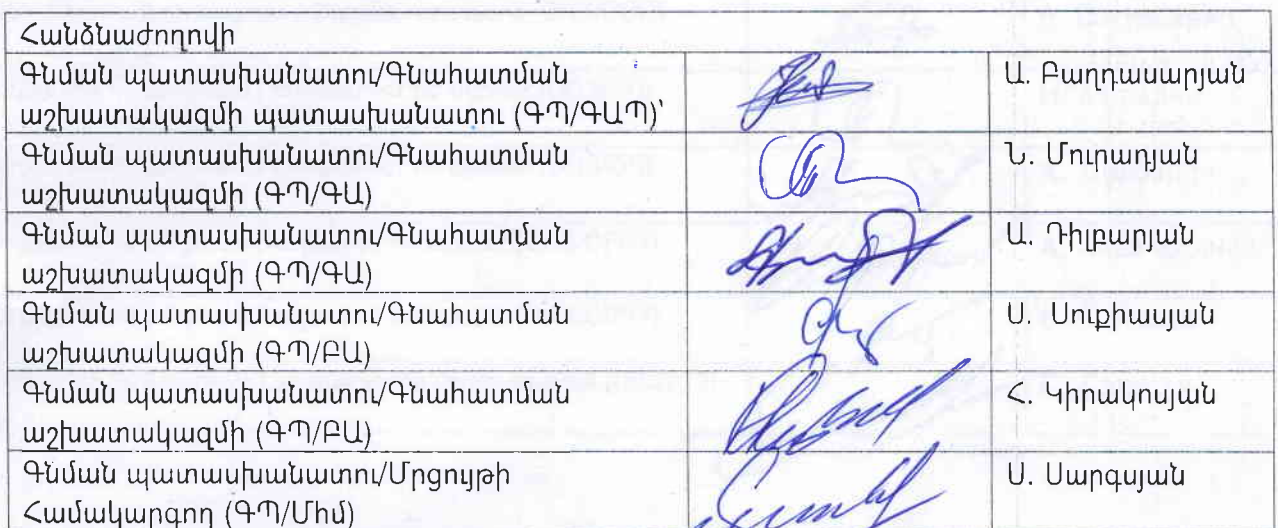 Հանձնաժողովի
Գնման պատասխանատու/Գնահատման
աշխատակազմի պատասխանատու (ԳՊ/ԳԱՊ)՝
Ա. Բաղդասարյան
Գնման պատասխանատու/Գնահատման
աշխատակազմի (ԳՊ/ԳԱ)
Ն. Մուրադյան
Գնման պատասխանատու/Գնահատման
աշխատակազմի (ԳՊ/ԳԱ)
Ա. Դիլբարյան
Գնման պատասխանատու/Գնահատման
աշխատակազմի (ԳՊ/ԲԱ)
Ս. Սուքիասյան
Գնման պատասխանատու/Գնահատման
աշխատակազմի (ԳՊ/ԲԱ)
Հ. Կիրակոսյան
Գնման պատասխանատու/Մրցույթի
Համակարգող (ԳՊ/Մհմ)
Ս. Սարգսյան